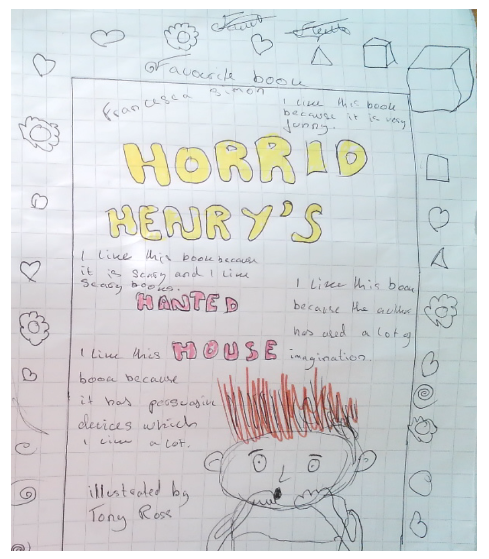 Favourite book
Francesca Simon
I like this book
because it is very
funny.
HORRID
HENRY'S
I like this book because
it is scary and I like
scary books.
HANTED
I like this book
because the author
has used a lot of
imagination.
HOUSE
I like this
book because
it has persuasive
devices which
I like a lot.
illustrated by
Tony Ross